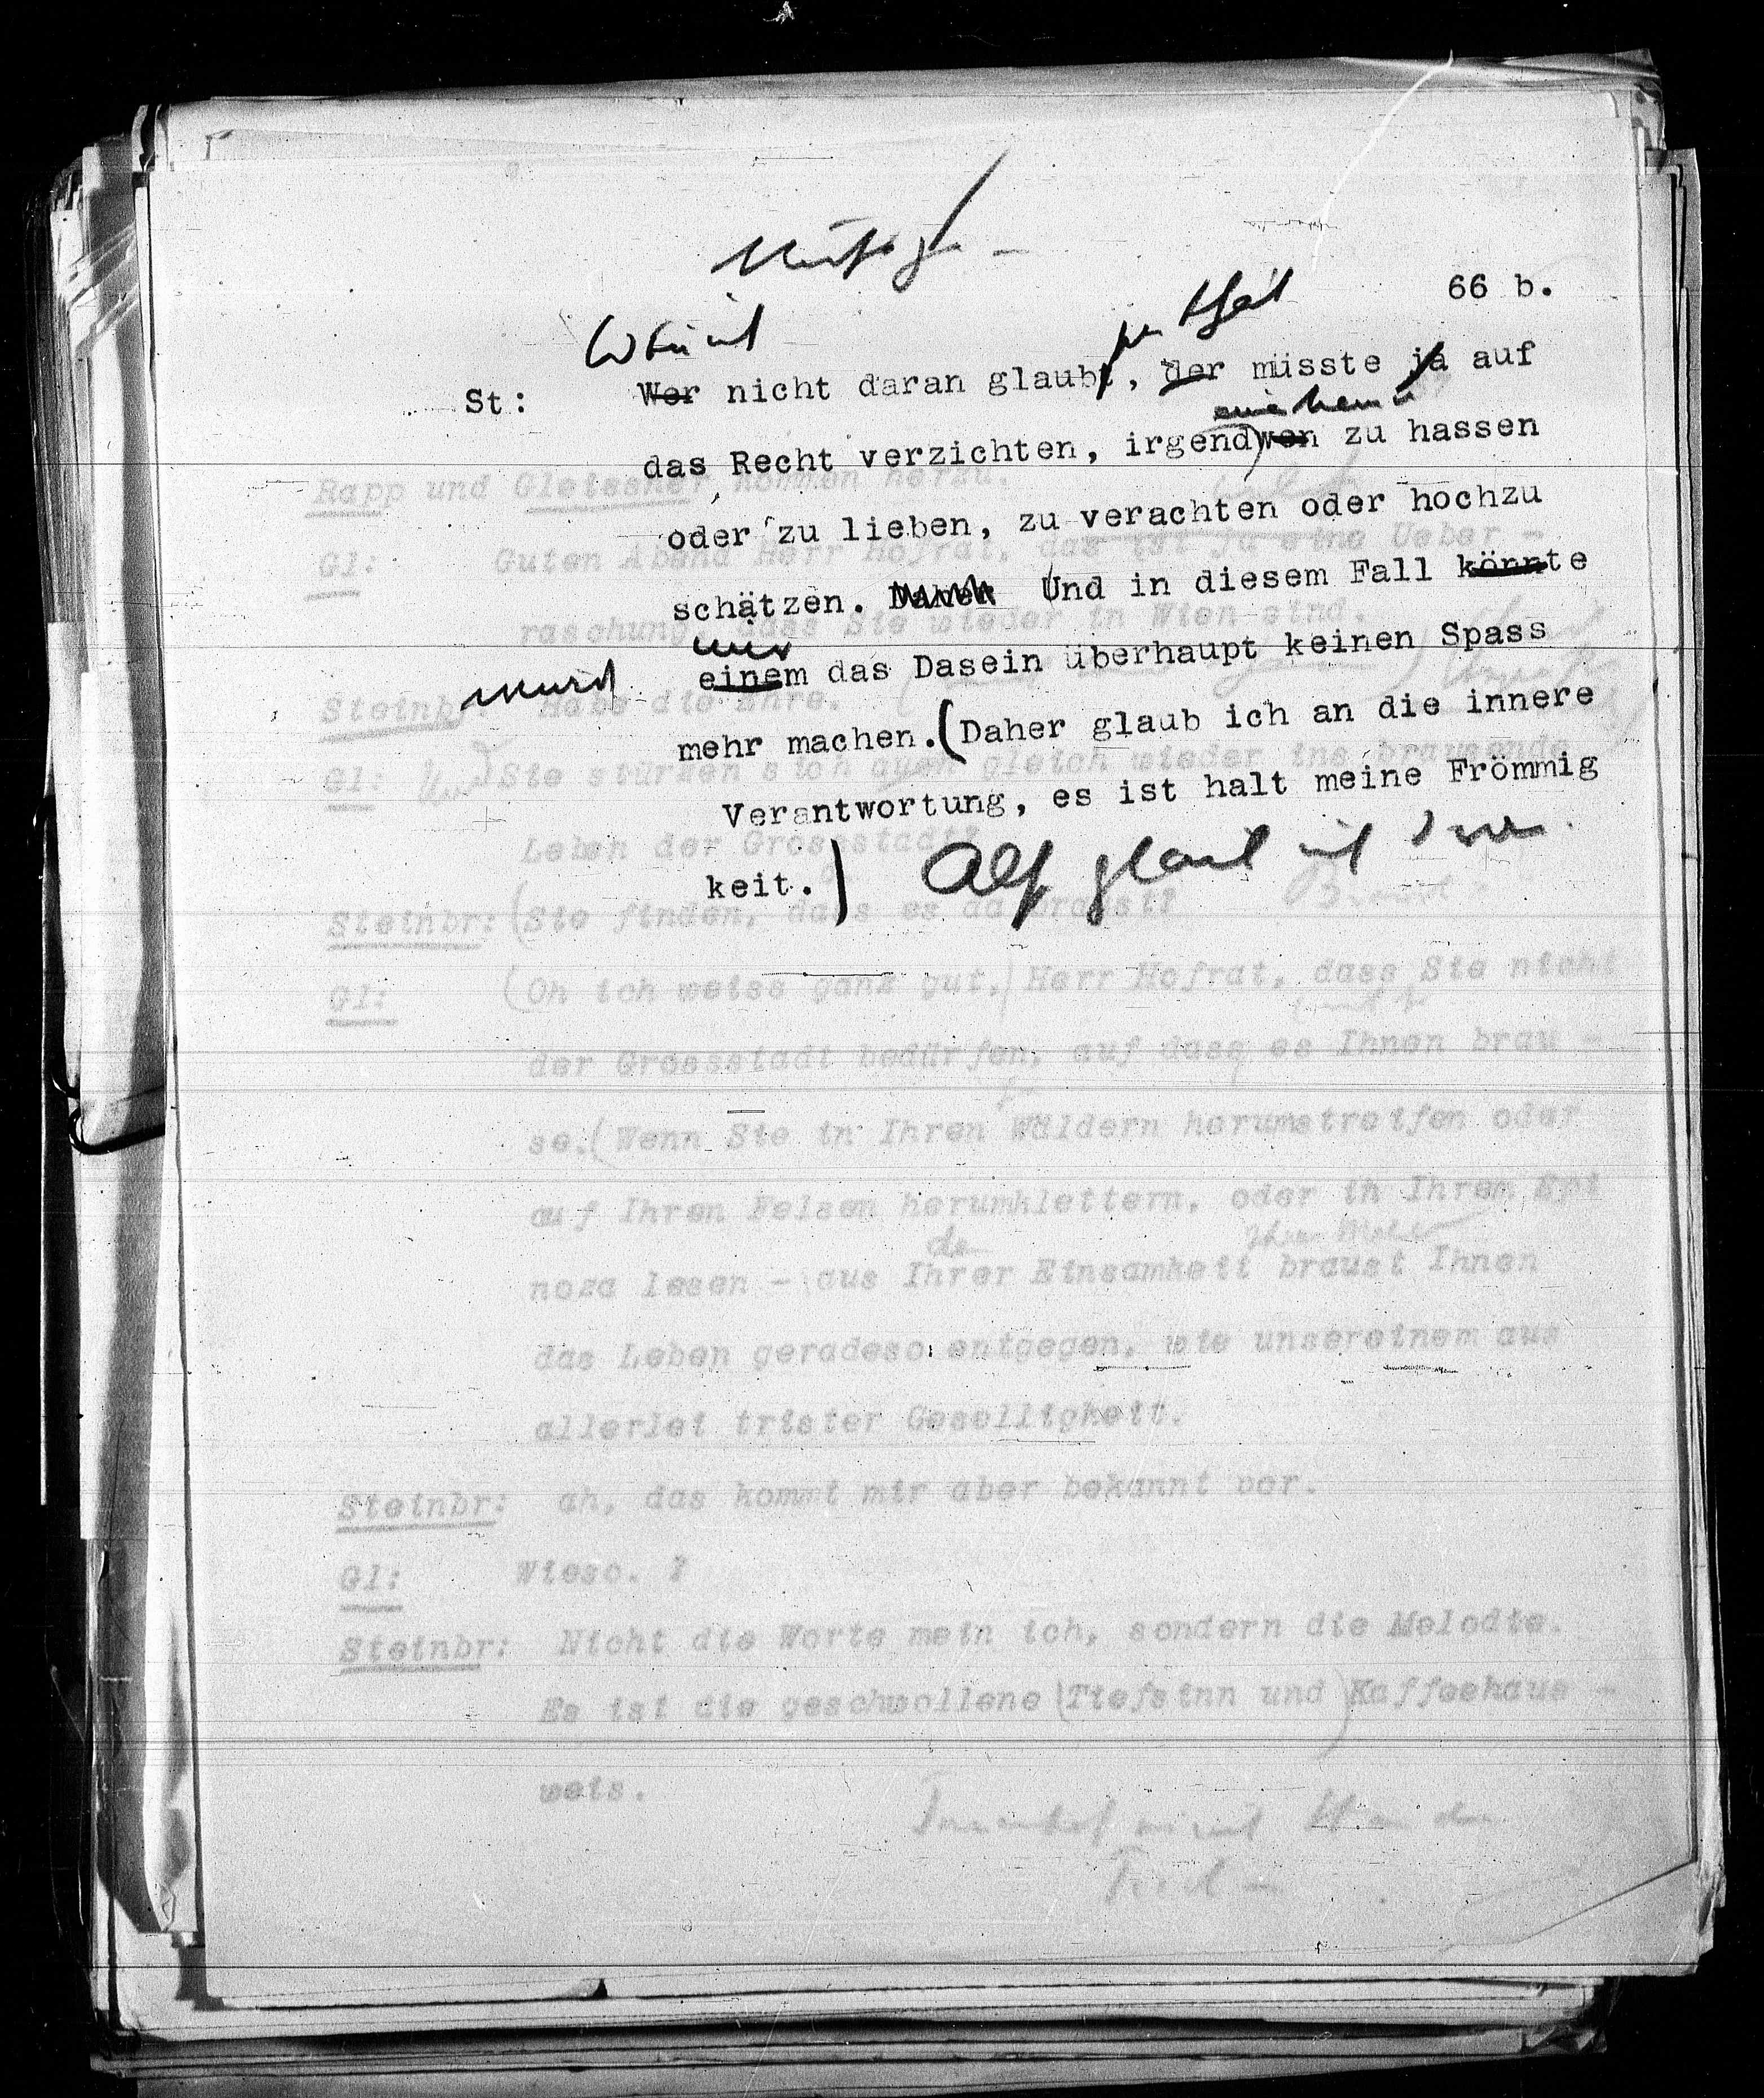 66 b.
Wenn ich
St: Wer nicht daran glaubt, der müsste ja auf
das Recht verzichten, irgendwen zu hassen
oder zu lieben, zu verachten oder hochzu
schätzen. Daher Und in diesem Fall könnte
mir
einem das Dasein überhaupt keinen Spass
mehr machen. (Daher glaub ich an die innere
Verantwortung, es ist halt meine Frömmig
keit.) Also glaub ich dran.
Rapp und Gleissner kommen herzu.
Gl: Guten Abend Herr Hofrat, das ist ja eine Ueber -
raschung, dass Sie wieder in Wien sind.
Steinbr: Habe die Ehre.
Gl: Sie stürzen sich auch gleich wieder ins brausende
Leben der Grossstadt?
Steinbr: (Sie finden, dass es da braust?
Gl: (Oh ich weiss ganz gut,) Herr Hofrat, dass Sie nicht
der Grossstadt bedürfen, auf dass es Ihnen brau -
se. (Wenn Sie in Ihren Wäldern herumstreifen oder
auf Ihren Felsen herumklettern, oder in Ihrem Spi
noza lesen - aus Ihrer Einsamkeit braust Ihnen
das Leben geradeso entgegen, wie unsereinem aus
allerlei trister Geselligkeit.
Steinbr: ah, das kommt mir aber bekannt vor.
Gl: Wieso. ?
Steinbr: Nicht die Worte mein ich, sondern die Melodie.
Es ist die geschwollene (Tiefsinn und) Kaffeehaus -
weis.